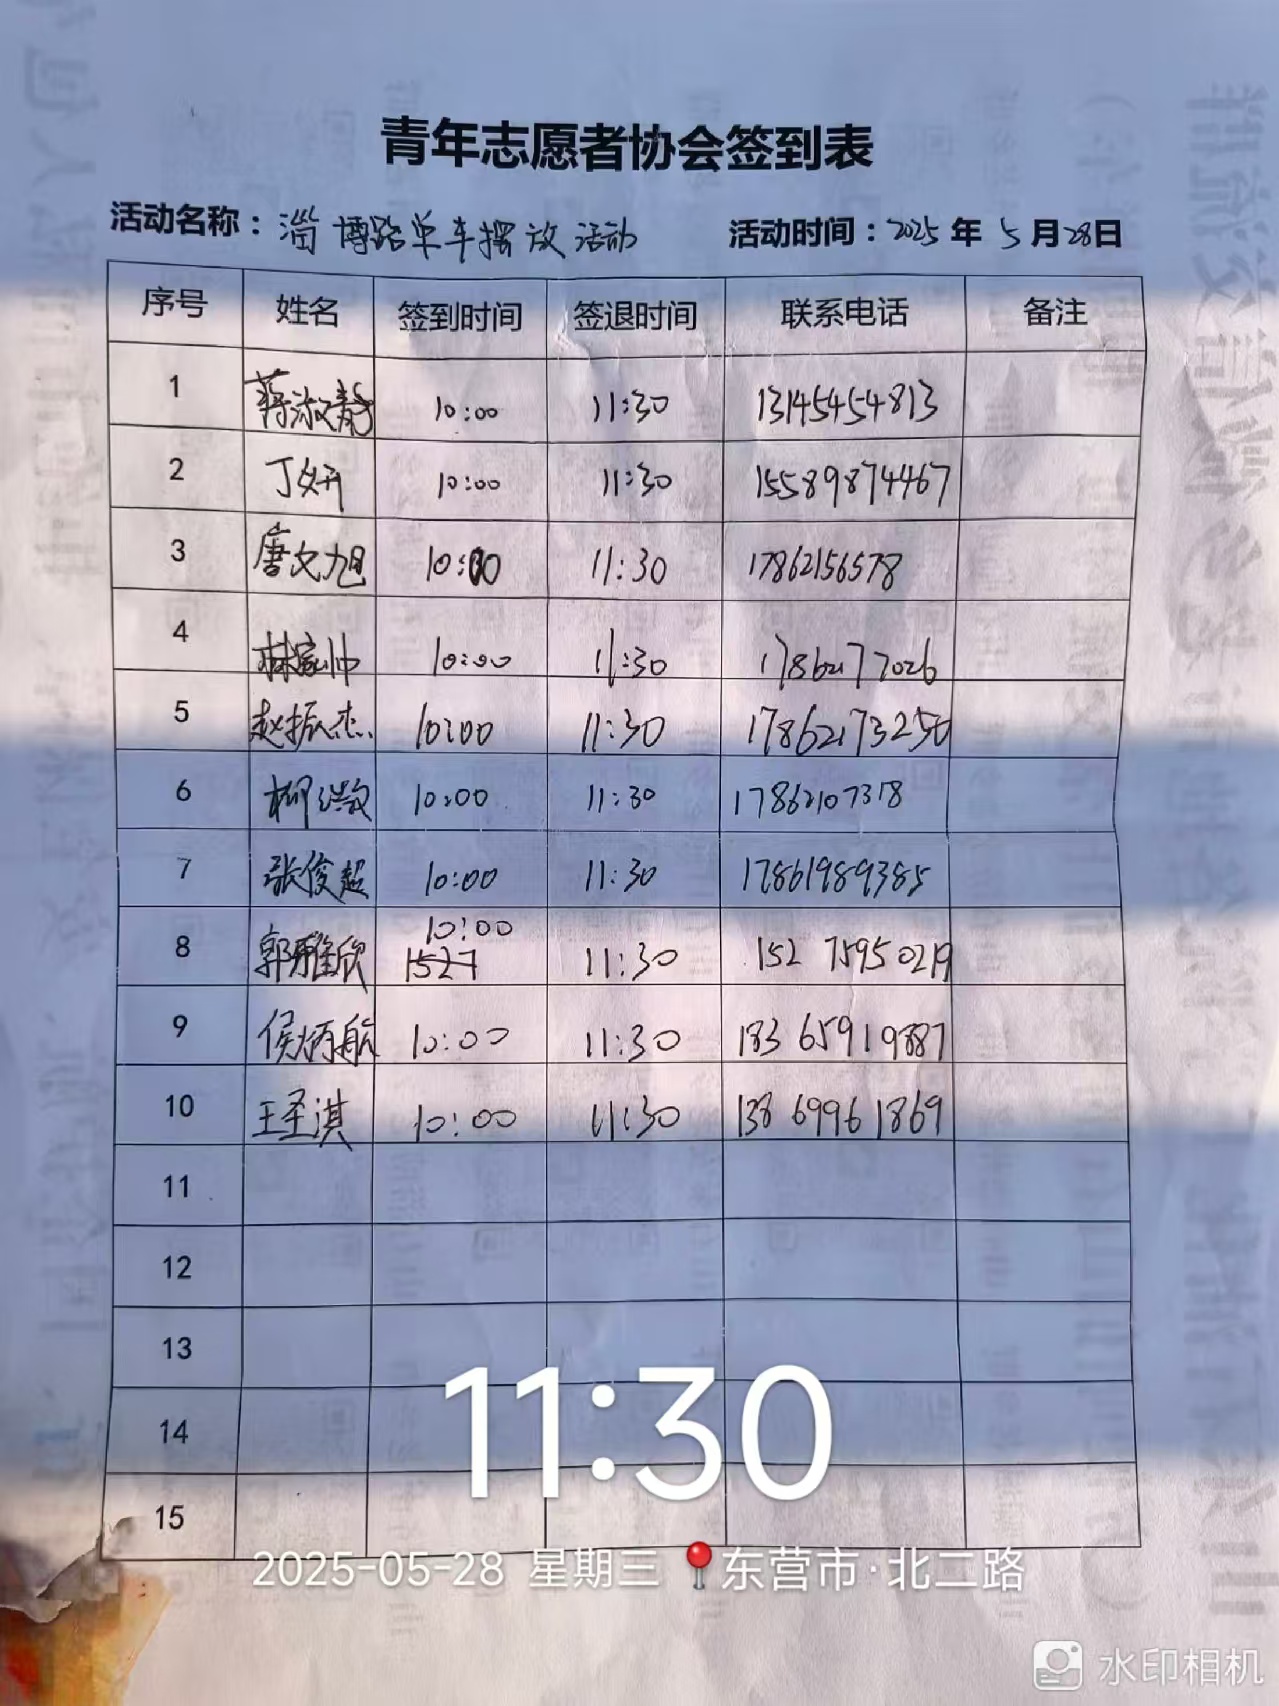 青年志愿者协会签到表
活动名称：淄博路单车摆放活动 活动时间：2025年5月28日
序号 姓名 签到时间 签退时间 联系电话 备注
1 蒋淑静 10:00 11:30 13145454813
2 丁妍 10:00 11:30 15589874467
3 唐文旭 10:00 11:30 17862156578
4 林家帅 10:00 11:30 17862177026
5 赵振杰 10:00 11:30 17862173250
6 柳 10:00 11:30 17862107378
7 张俊超 10:00 11:30 17861989385
10:00
8 郭雅欣 1527 11:30 152 7595 0219
9 侯炳航 10:00 11:30 183 6591 9887
10 王圣淇 10:00 11:30 138 6996 1869
11
12
13
14
15
11:30
2025-05-28 星期三 东营市·北二路
水印相机